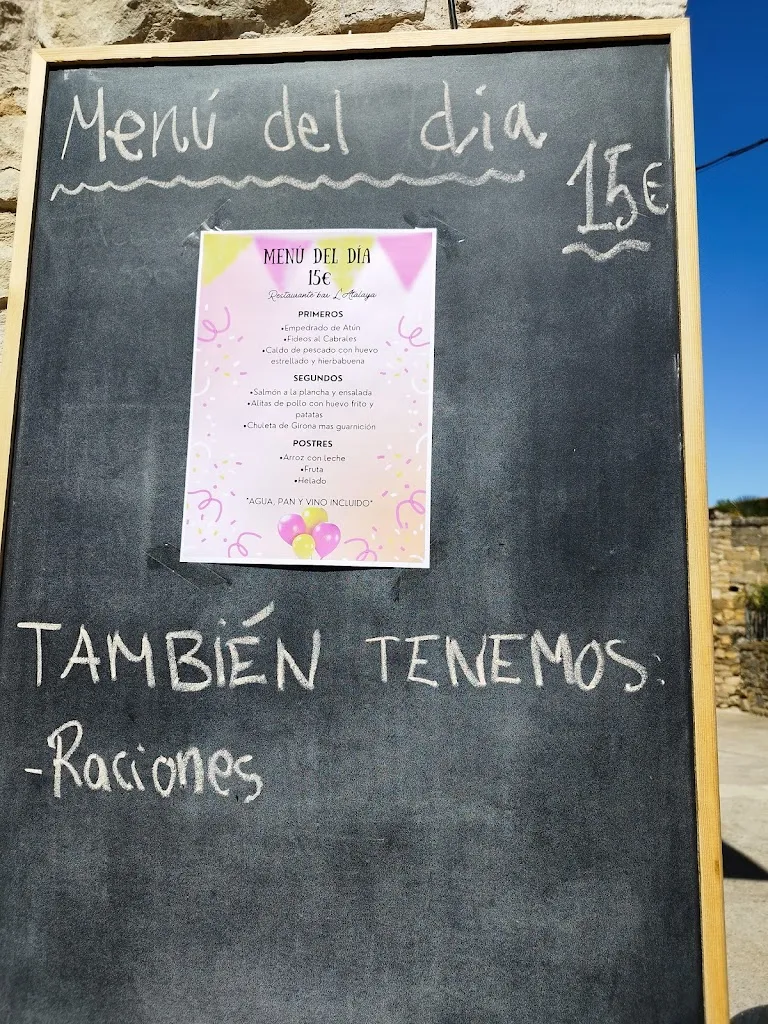 Menú del día
15€
MENÚ DEL DÍA
15€
Restaurante bar L'Atalaya
PRIMEROS
•Empedrado de Atún
•Fideos al Cabrales
•Caldo de pescado con huevo
estrellado y hierbabuena
SEGUNDOS
•Salmón a la plancha y ensalada
•Alitas de pollo con huevo frito y
patatas
•Chuleta de Girona mas guarnición
POSTRES
•Arroz con leche
•Fruta
•Helado
*AGUA, PAN Y VINO INCLUIDO*
TAMBIÉN TENEMOS:
-Raciones